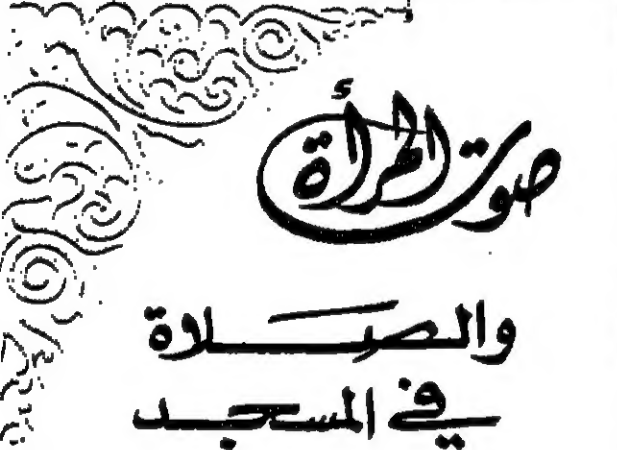 صوت المرأة
والصلاة
في المسجد